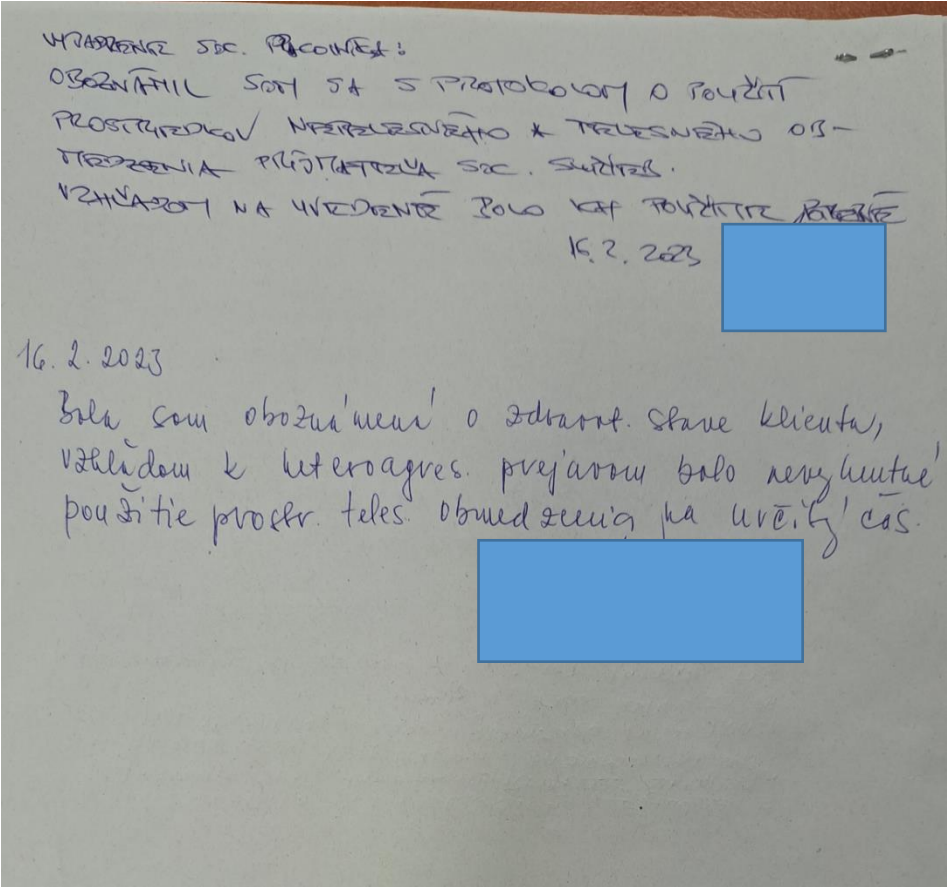 VYJADRENIE SOC. PRACOVNÍKA:
OBOZNÁMIL SOM SA S PROTOKOLOM O POUŽITÍ
PROSTRIEDKOV NETELESNÉHO A TELESNÉHO OB-
MEDZENIA PRIJÍMATEĽA SOC. SLUŽIEB.
VZHĽADOM NA UVEDENÉ BOLO ICH POUŽITIE POTREBNÉ
16.2.2023
16.2.2023
Bola som oboznámená o zdravot. stave klienta,
vzhľadom k heteroagres. prejavom bolo nevyhnutné
použitie prostr. teles. obmedzenia na určitý čas.